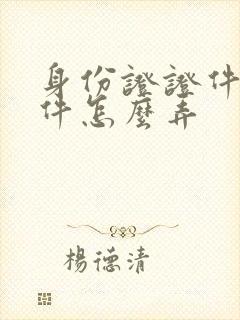 身份證證件
件怎麼弄
楊德清